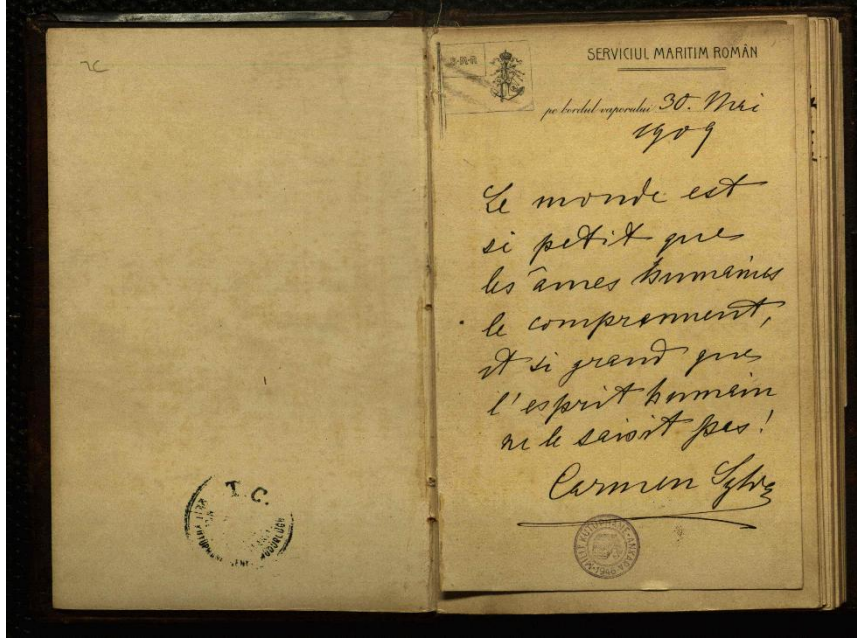 SERVICIUL MARITIM ROMÂN
S-M-R
pe bordul vaporului 30. Mai
1909
Le monde est
si petit que
les âmes humaines
le comprennent,
et si grand que
l'esprit humain
ne le saisit pas!
Carmen Sylva
T. C.
MİLLİ KÜTÜPHANE-ANKARA-1946